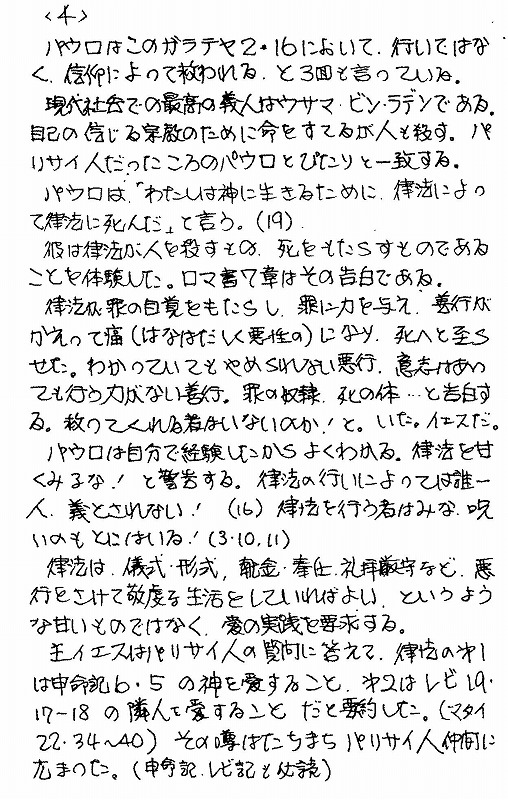 <4>
パウロはこのガラテヤ2・16において、行いではな
く、信仰によって救われる、と3回も言っている。
現代社会での最高の義人はウサマ・ビン・ラデンである。
自己の信じる宗教のために命をすてるが人も殺す。パ
リサイ人だったころのパウロとぴたりと一致する。
パウロは、「わたしは神に生きるために、律法によっ
て律法に死んだ」と言う。(19)
彼は律法が人を殺すもの、死をもたらすものである
ことを体験した。ロマ書7章はその告白である。
律法が罪の自覚をもたらし、罪に力を与え、善行が
かえって痛(はなはだしく悪性の)になり、死へと至ら
せた。わかっていてもやめられない悪行、意志はあっ
ても行う力がない善行。罪の奴隷、死の体…と告白す
る。救ってくれる者はいないのか！と。いた。イエスだ。
パウロは自分で経験したからよくわかる。律法を甘
くみるな！と警告する。律法の行いによっては誰一
人、義とされない！(16) 律法を行う者はみな、呪
いのもとにはいる！(3・10,11)
律法は、儀式・形式、献金・奉仕、礼拝厳守など、悪
行をさけて敬虔な生活をしていればよい、というよう
な甘いものではなく、愛の実践を要求する。
主イエスはパリサイ人の質問に答えて、律法の才1
は申命記6・5の神を愛すること、才2はレビ19・
17～18の隣人を愛することだと要約した。(マタイ
22・34～40) その噂はたちまちパリサイ人仲間に
広まった。(申命記、レビ記も必読)